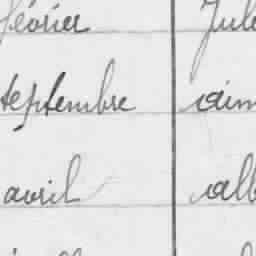 février Jul
septembre aim
avril alb